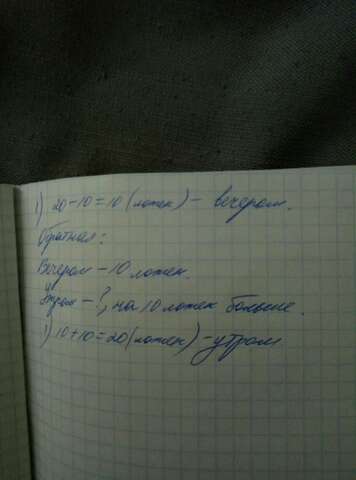 1) 20-10=10 (лотек) - вечером.
Обратная:
Вечером - 10 лотек.
Утром - ?, на 10 лотек больше.
1) 10+10=20 (лотек) - утром